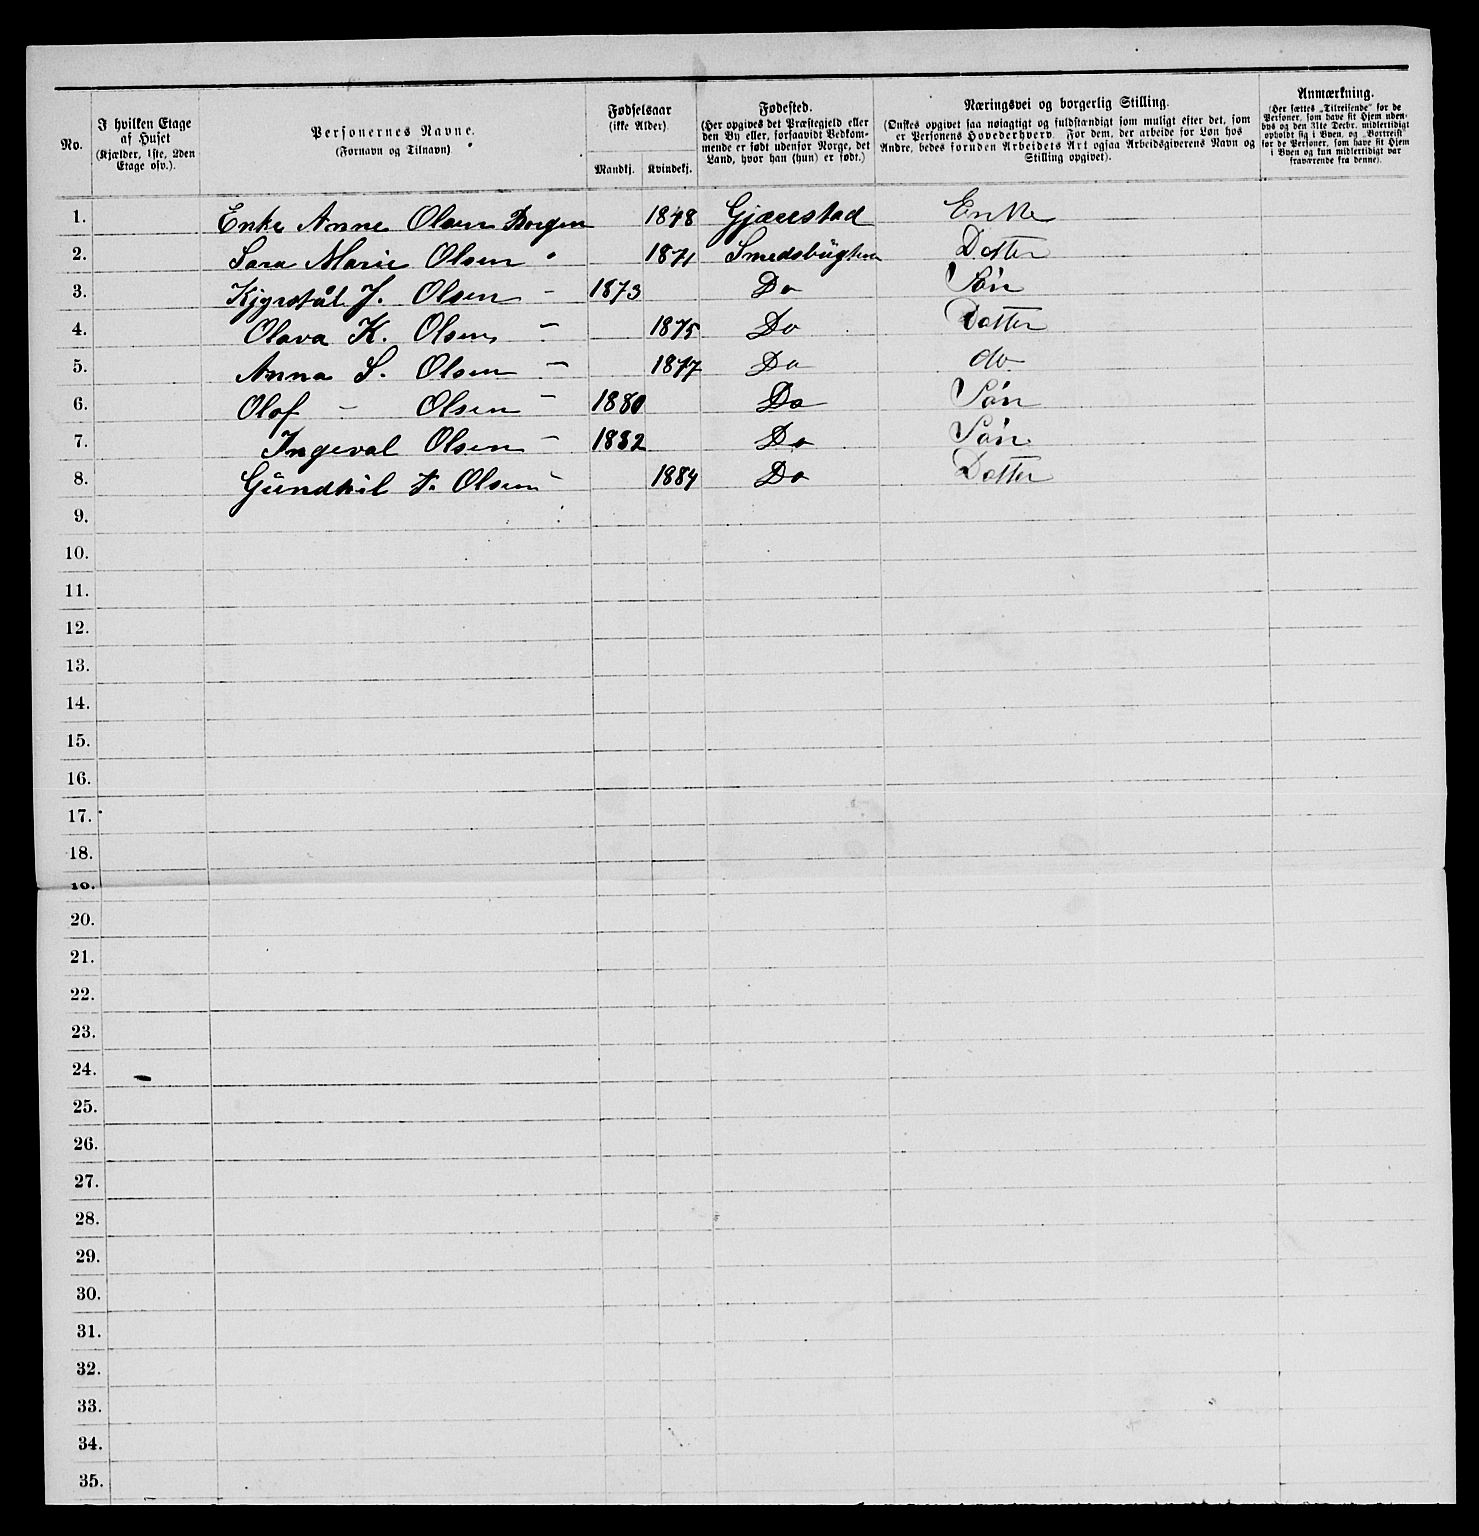 No. | I hvilken Etage af Huset (Kjælder, 1ste, 2den Etage osv.). | Personernes Navne. (Fornavn og Tilnavn) | Fødselsaar (ikke Alder). Mandkj. | Kvindekj. | Fødested. (Her opgives det Præstegjeld eller den By eller, forsaavidt Vedkommende er født udenfor Norge, det Land, hvor han (hun) er født.) | Næringsvei og borgerlig Stilling. (Ønskes opgivet saa nøiagtigt og fuldstændigt som muligt efter det, som er Personens Hovederhverv. For dem, der arbeide for Løn hos Andre, bedes foruden Arbeidets Art ogsaa Arbeidsgiverens Navn og Stilling opgivet). | Anmærkning. (Her sættes „Tilreisende" for de Personer, som have sit Hjem udenbys og den 31te Decbr. midlertidigt opholdt sig i Byen, og „Bortreist" for de Personer, som have sit Hjem i Byen og kun midlertidigt var fraværende fra denne).
1. Enke Anne Olsen Borgen 1848 Gjærestad Enke
2. Sara Marie Olsen 1871 Smedsbügten Dotter
3. Kjyrstål J. Olsen - 1873 Do Søn
4. Olava K. Olsen - 1875 Do Dotter
5. Anna S. Olsen - 1877 Do do
6. Olof - Olsen - 1880 Do Søn
7. Ingeval Olsen - 1882 Do Søn
8. Gündhil Olsen - 1884 Do Dotter
9.
10.
11.
12.
13.
14.
15.
16.
17.
18.
19.
20.
21.
22.
23.
24.
25.
26.
27.
28.
29.
30.
31.
32.
33.
34.
35.